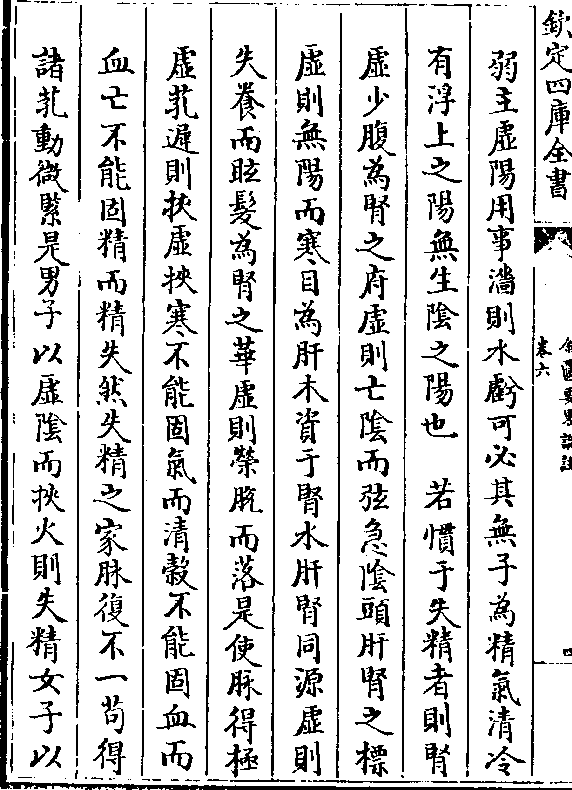 欽定四庫全書
卷六
弱主虛陽用事濇則水虧可必其無子為精氣清冷
有浮上之陽無生陰之陽也　若慣于失精者則腎
虛少腹為腎之府虛則亡陰而弦急陰頭肝腎之標
虛則無陽而寒目為肝木資于腎水肝腎同源虛則
失養而眩髮為腎之華虛則榮脫而落是使脉得極
虛芤遲則挾虛挾寒不能固氣而清穀不能固血而
血亡不能固精而精失然失精之家脉復不一苟得
諸芤動微緊是男子以虛陰而挾火則失精女子以